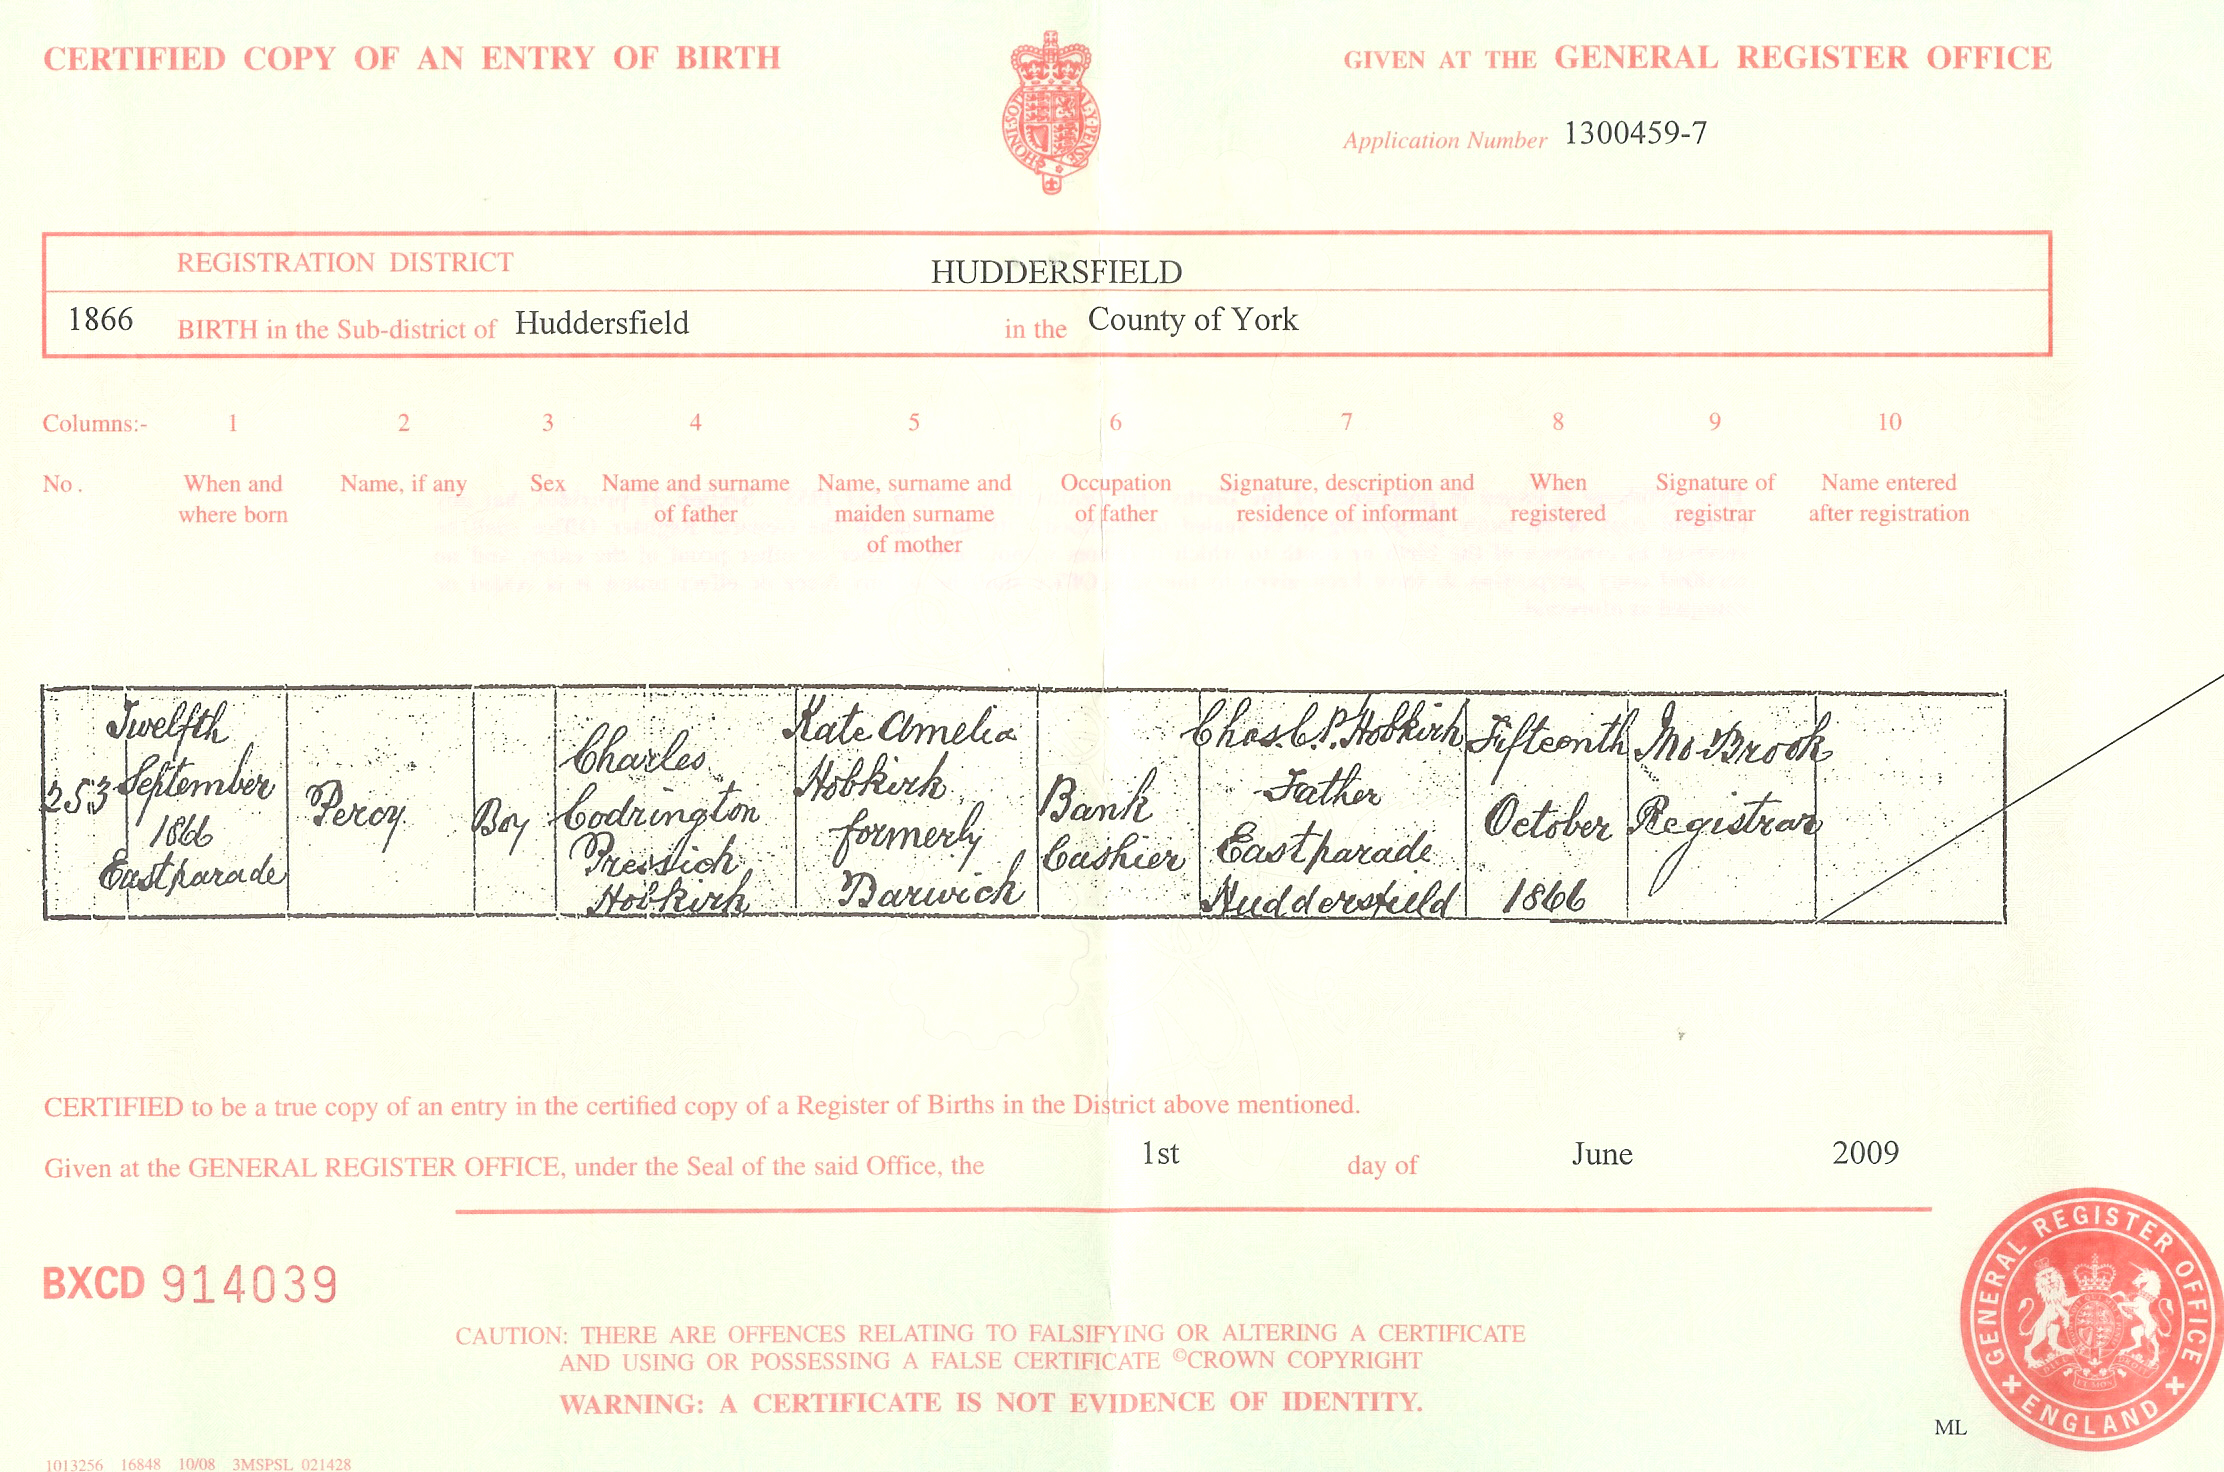 CERTIFIED COPY OF AN ENTRY OF BIRTH
GIVEN AT THE GENERAL REGISTER OFFICE
HONI·SOIT AL·Y·PENSE
Application Number 1300459-7
REGISTRATION DISTRICT HUDDERSFIELD
1866 BIRTH in the Sub-district of Huddersfield in the County of York
Columns:- 1 2 3 4 5 6 7 8 9 10
No. When and where born
Name, if any
Sex
Name and surname of father
Name, surname and maiden surname of mother
Occupation of father
Signature, description and residence of informant
When registered
Signature of registrar
Name entered after registration
253
Twelfth
September
1866
Eastparade
Percy
Boy
Charles
Codrington
Pressick
Hobkirk
Kate Amelia
Hobkirk
formerly
Barwick
Bank
Cashier
Chas. C. P. Hobkirk
Father
Eastparade
Huddersfield
Fifteenth
October
1866
Brook
Registrar
CERTIFIED to be a true copy of an entry in the certified copy of a Register of Births in the District above mentioned.
Given at the GENERAL REGISTER OFFICE, under the Seal of the said Office, the 1st day of June 2009
BXCD 914039
CAUTION: THERE ARE OFFENCES RELATING TO FALSIFYING OR ALTERING A CERTIFICATE
AND USING OR POSSESSING A FALSE CERTIFICATE ©CROWN COPYRIGHT
WARNING: A CERTIFICATE IS NOT EVIDENCE OF IDENTITY.
GENERAL REGISTER OFFICE
ENGLAND
ML
1013256 16848 10/08 3MSPSL 021428